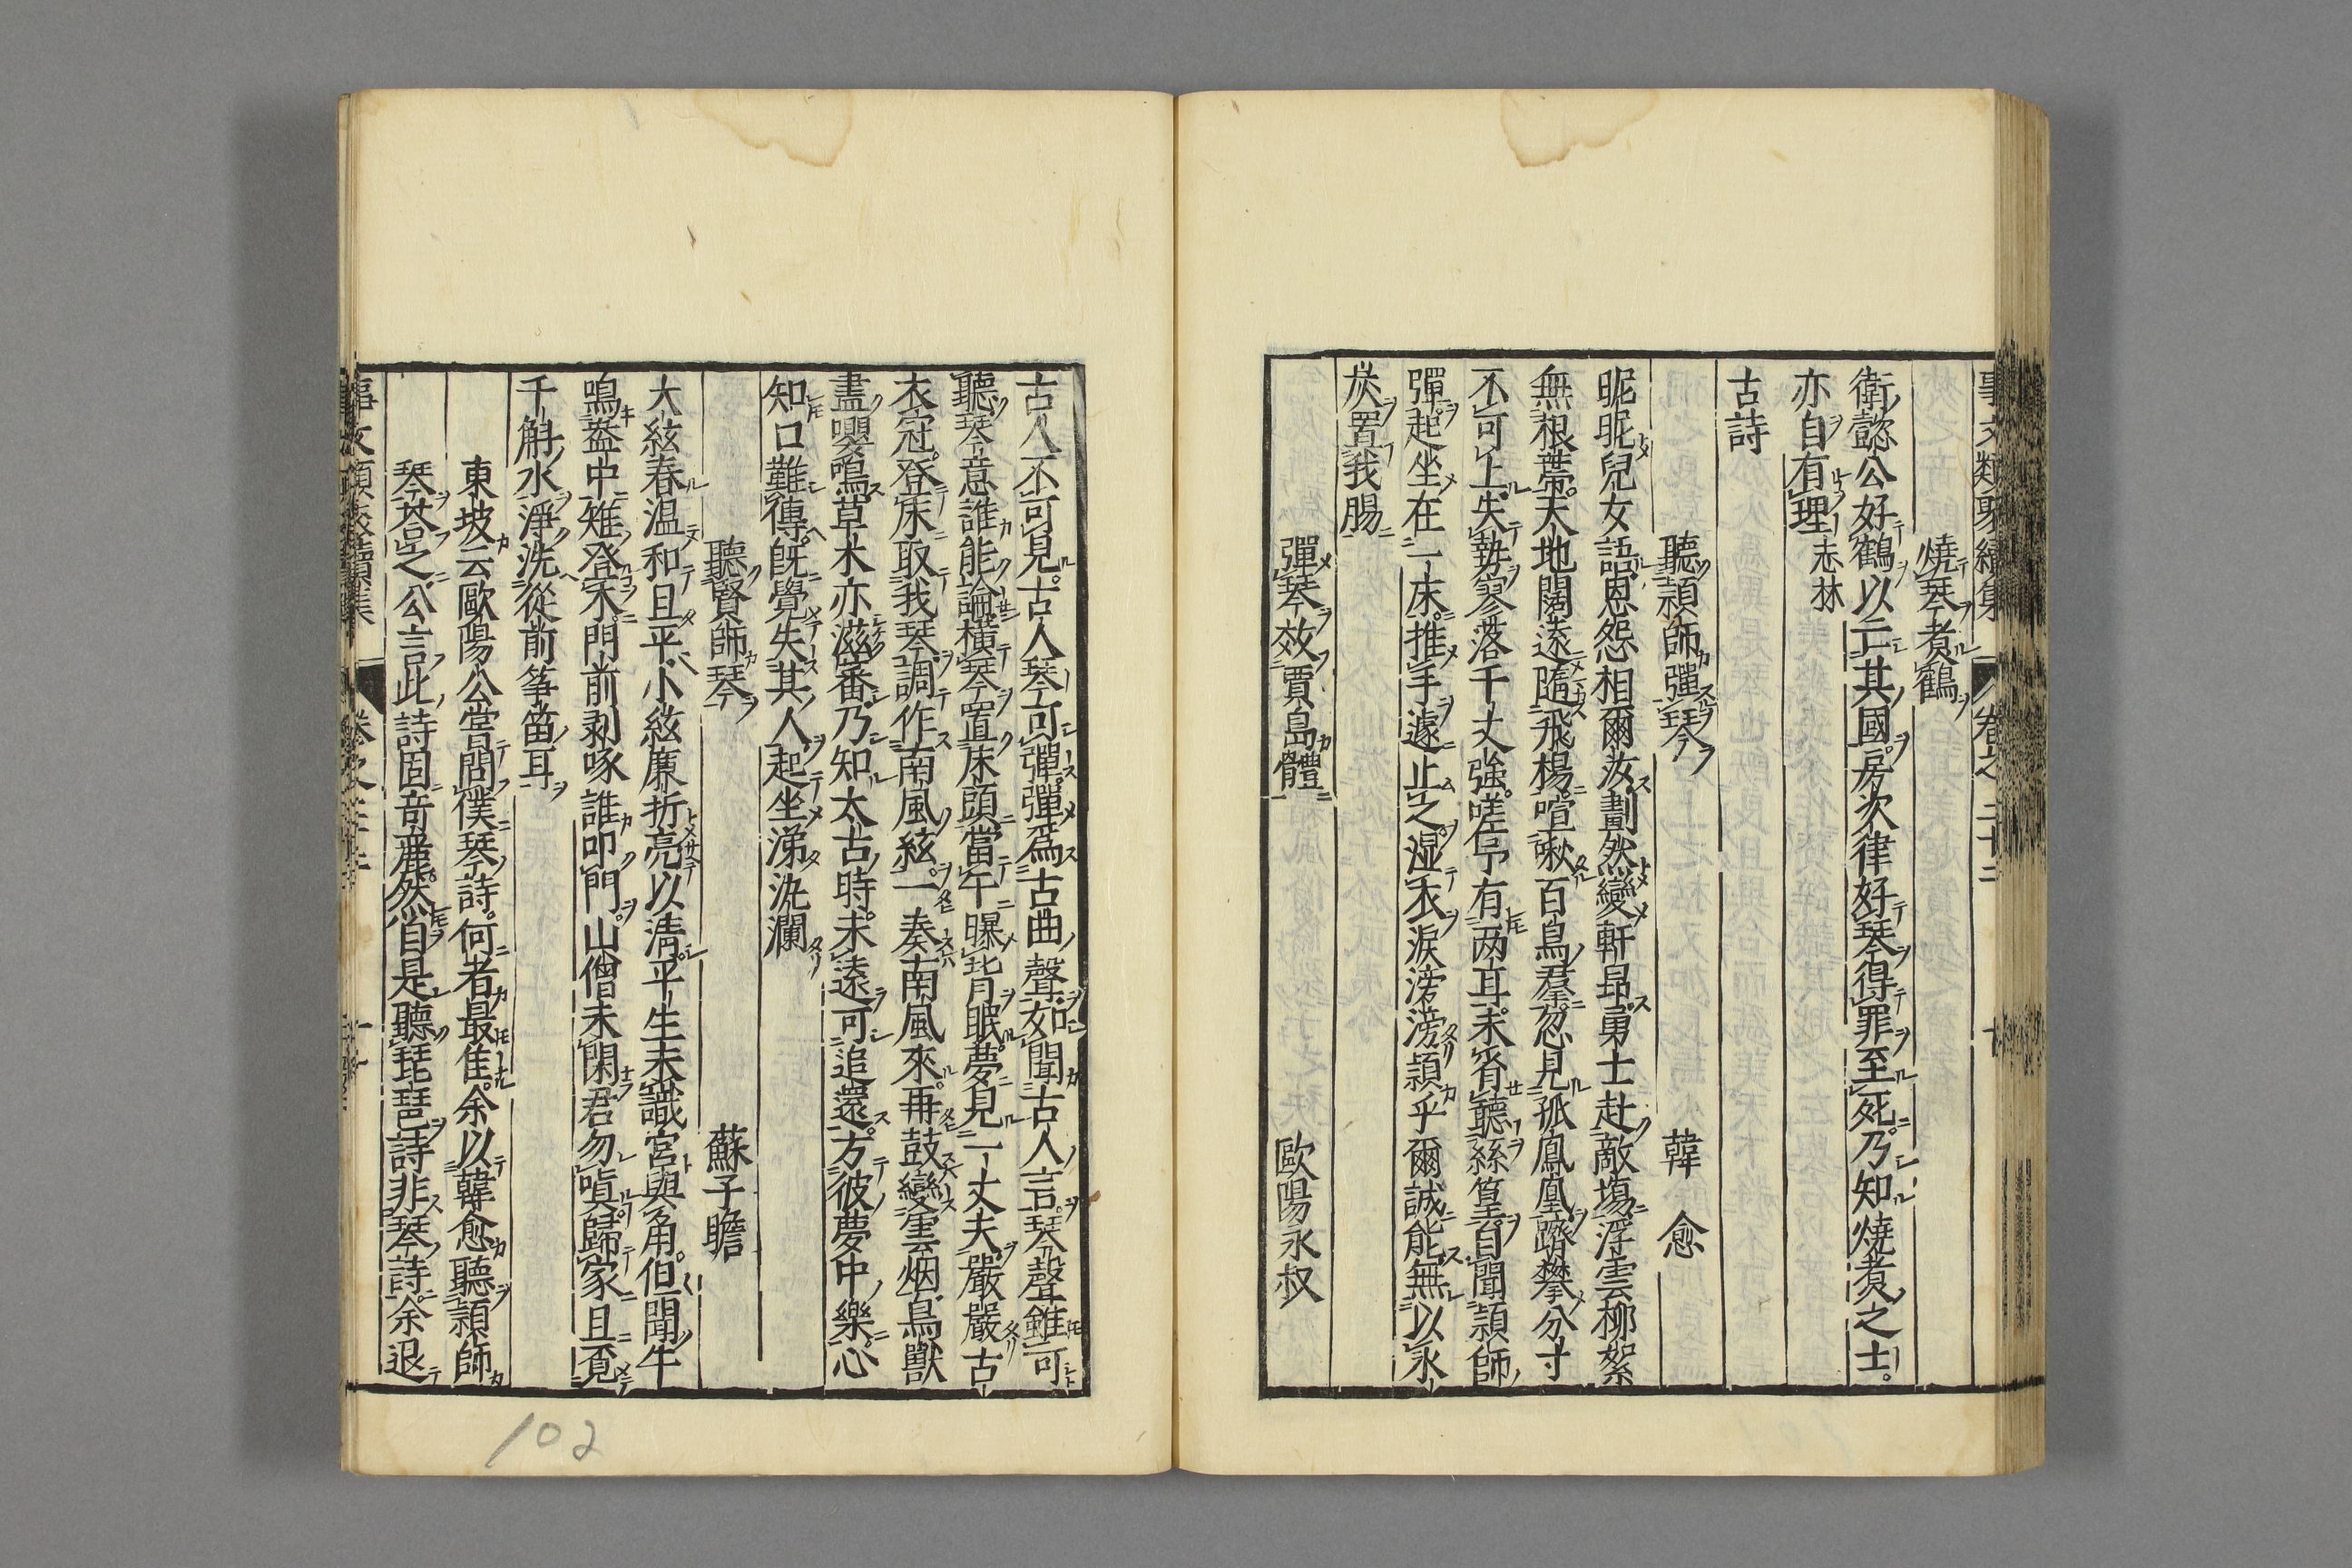 事文類聚續集 卷之二十二 十
燒琴煮鶴
衛懿公好鶴以亡其國房次律好琴得罪至死乃知燒煮之士
亦自有理 志林
古詩
聽穎師彈琴 韓愈
昵昵兒女語恩怨相爾汝劃然變軒昂勇士赴敵塲浮雲柳絮
無根蔕天地闊遠隨飛楊喧啾百鳥羣忽見孤鳳凰躋攀分寸
不可上失勢一落千丈強嗟予有兩耳未省聽絲篁自聞穎師
彈起坐在一床推手遽止之濕衣淚滂滂穎乎爾誠能無以氷
炭置我腸
彈琴效賈島體 歐陽永叔
古人不可見古人琴可彈彈爲古曲聲如聞古人言琴聲雖可
聽琴意誰能論橫琴置床頭當午曝背眠夢見一丈夫嚴嚴古
衣冠登床取我琴調作南風絃一奏南風來再鼓變雲烟鳥獸
盡嚶鳴草木亦滋蕃乃知太古時未遠可追還方彼夢中樂心
知口難傳旣覺失其人起坐涕汍瀾
聽賢師琴 蘇子瞻
大絃春溫和且平小絃廉折亮以淸平生未識宮與角但聞牛
鳴盎中雉登木門前剥啄誰叩門山僧未閑君勿嗔歸家且覔
千斛水淨洗從前筝笛耳
東坡云歐陽公嘗問僕琴詩何者最佳余以韓愈聽穎師
琴荅之公言此詩固奇麗然自是聽琵琶詩非琴詩余退
102